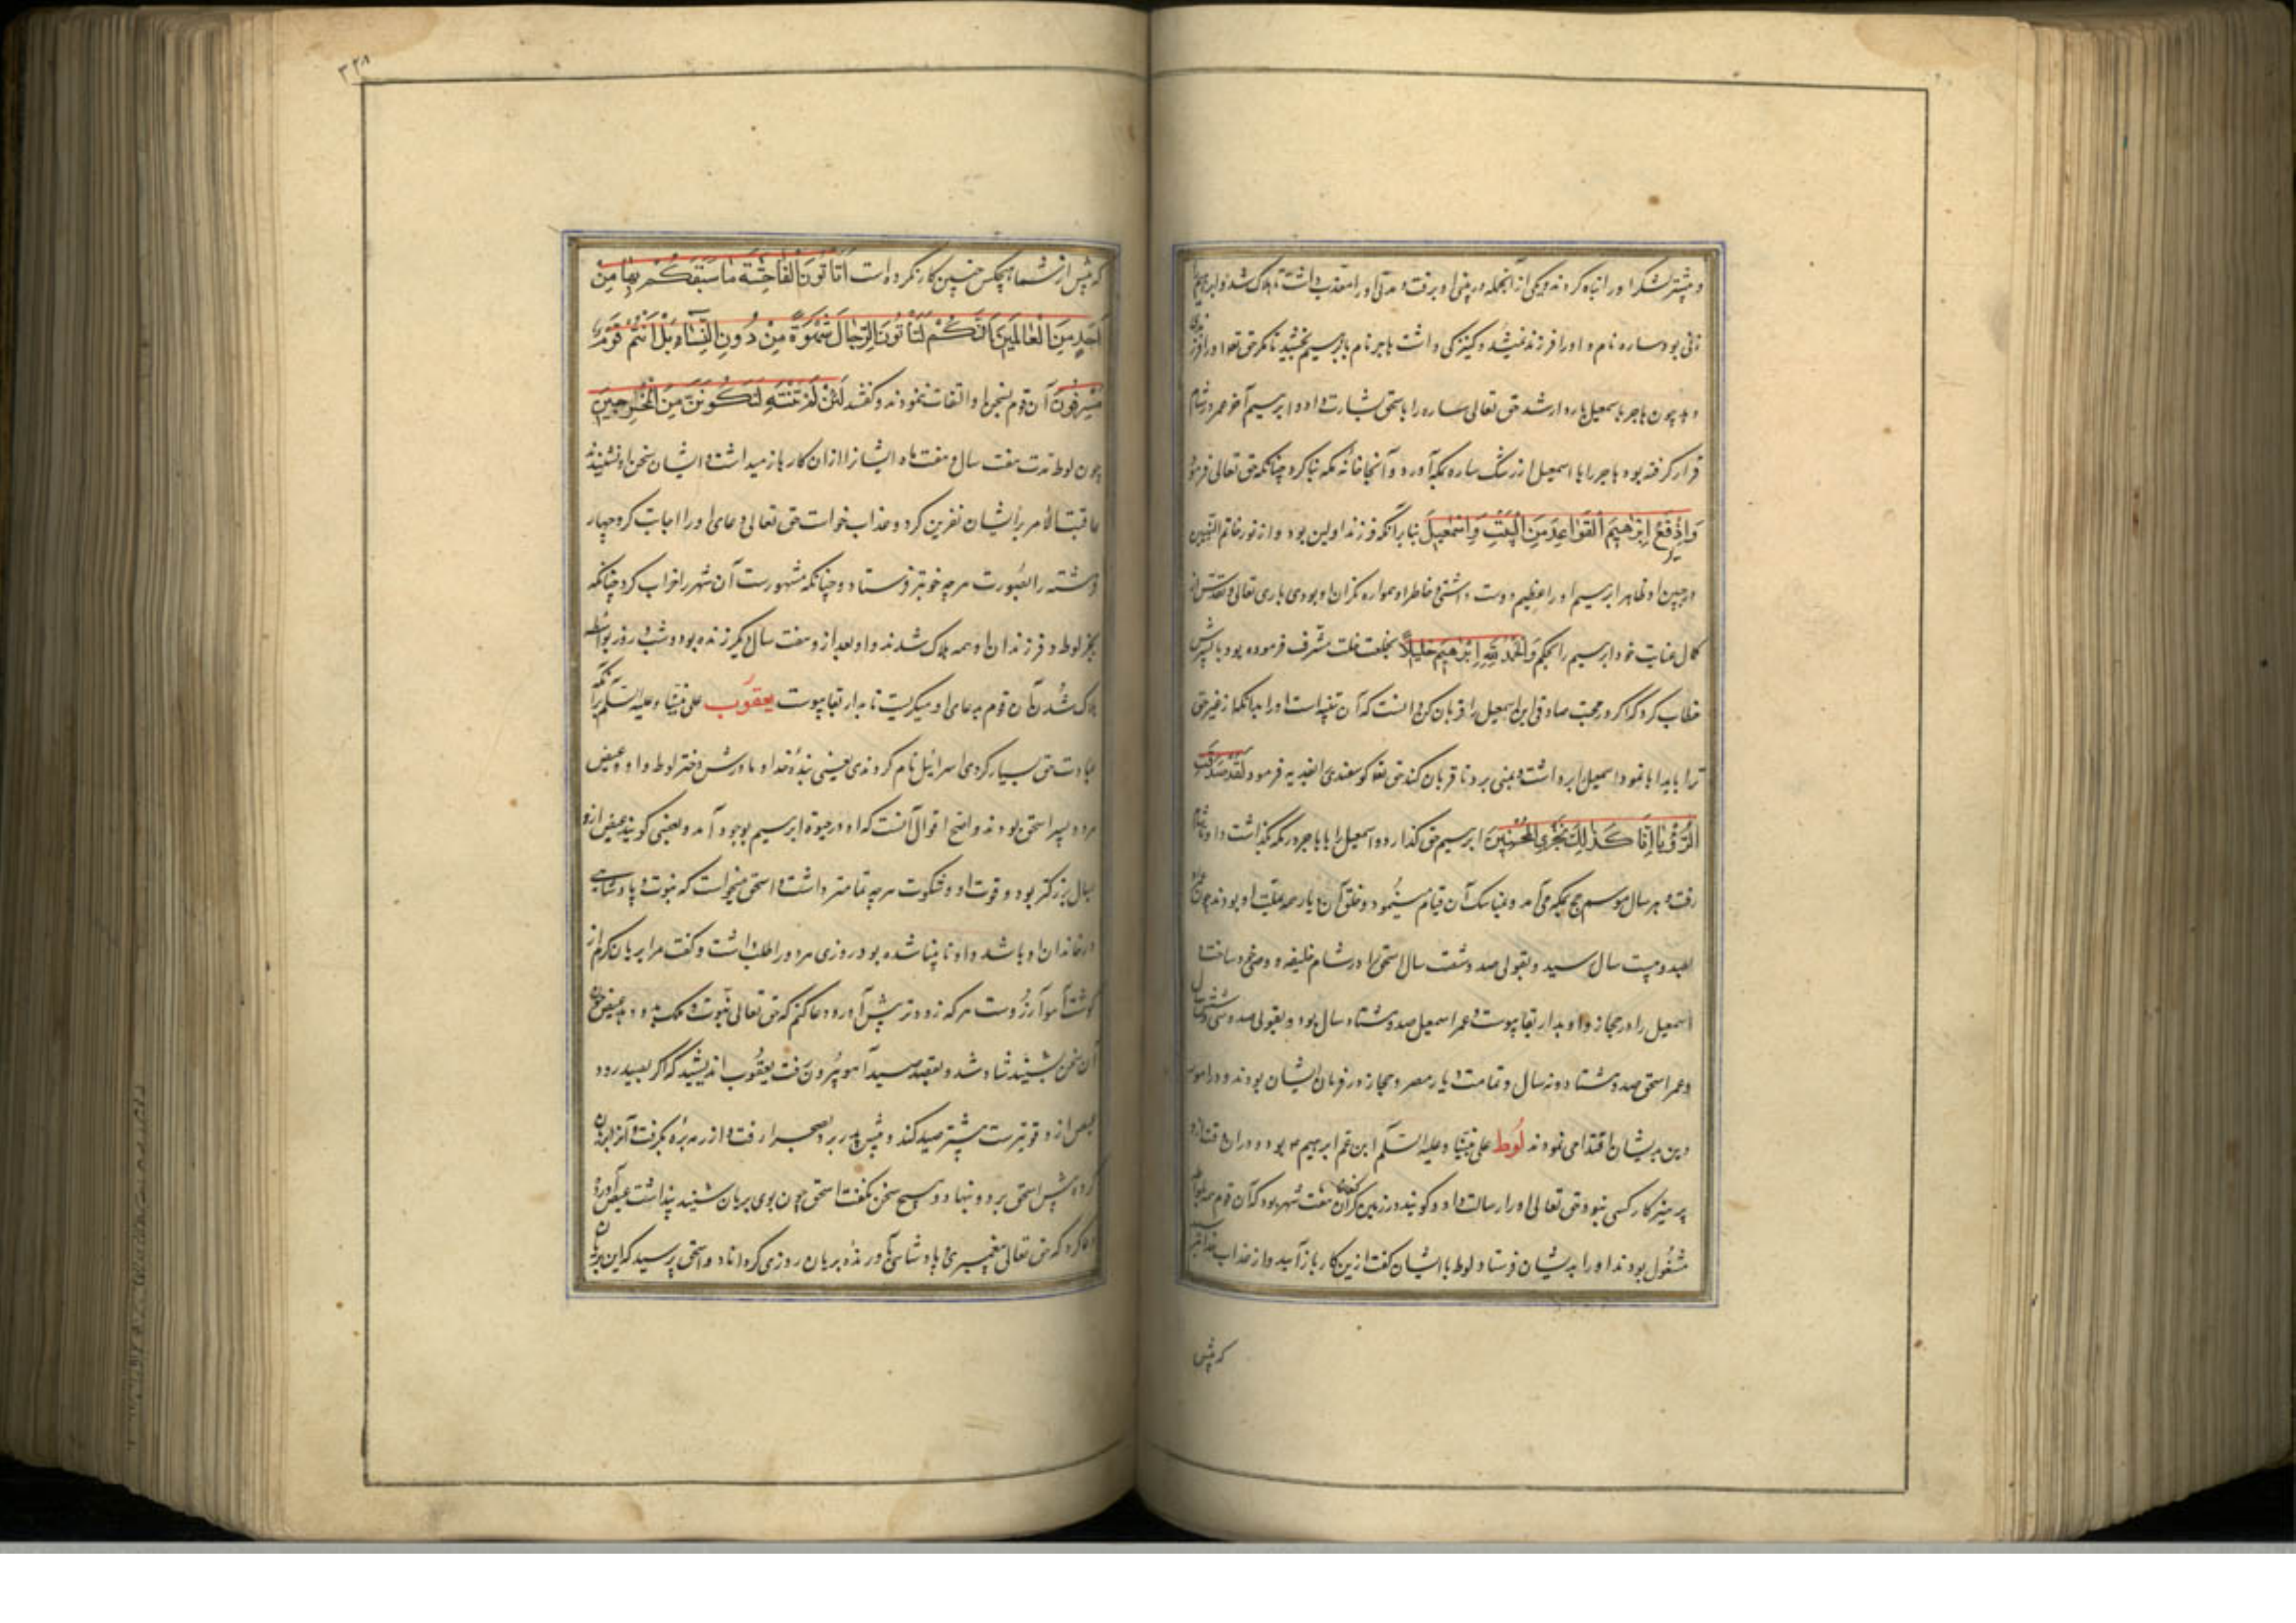 و بیشتر لشکر او را تباه کردند و یکی از آنجمله در بینی او برفت و مدتی او را معذب داشت تا هلاک شد و ابراهیم را
زنی بود ساره نام و او را فرزند نمیشد و کنیزکی داشت هاجر نام بابرهیم بخشید تا مگر حق تعا او را فرزندی
دهد چون هاجر باسمعیل باردار شد حق تعالی ساره را باسحق بشارت داد و ابرهیم آخر عمر در شام
قرار گرفته بود هاجر را با اسمعیل از رشک ساره بمکه آورد و آنجا خانه مکه بنا کرد چنانکه حق تعالی فرمود
وَاِذْ یَرْفَعُ اِبْرٰهِیمُ الْقَوٰاعِدَ مِنَ الْبَیْتِ وَاِسْمٰعِیلُ بنا برآنکه فرزند اولین بود و از نور خاتم النبیین
در جبین او ظاهر ابرهیم او را عظیم دوست داشتی و خاطر او همواره نگران او بودی باری تعالی و تقدس از
کمال عنایت خود ابرهیم را بحکم وَاتَّخَذَ اللّٰهُ اِبْرٰهِیمَ خَلِیلاً بخلعت خلت مشرف فرموده بود با پسرش
خطاب کرد که اگر در محبت صادقی این اسمعیل را قربان کن دانست که آن تنبیه است او را بدانکه از غیر حق
ترا باید ابا نمود اسمعیل را برداشت و بمنی برد تا قربان کند حق تعا گوسفندی را فدیه فرمود لَقَدْ صَدَّقْتَ
الرُّؤْیٰا اِنّٰا کَذٰلِکَ نَجْزِی الْمُحْسِنِینَ ابرهیم حق گذارد و اسمعیل را با هاجر در مکه بگذاشت و او بشام
رفت و هر سال موسم حج بمکه می آمد و بمناسک آن قیام مینمود و خلق آن دیار همه ملت او بودند چون عمرش
بصد و بیست سال رسید و بقولی صد و شصت سال اسحق را در شام خلیفه و وصی خود ساخت و
اسمعیل را در حجاز و او بدار بقا پیوست و عمر اسمعیل صد و هشتاد سال بود و بقولی صد و سی و شش سال
و عمر اسحق صد و هشتاد و نه سال و تمامت دیار مصر و حجاز در فرمان ایشان بودند و در امور
دین بدیشان اقتدا می نمودند لوط علی نبینا و علیه السلم ابن عم ابرهیم م بود و در آن وقت از او
پرهیزگارتر کسی نبود حق تعالی او را رسالت داد و گویند در زمین کنعان هفت شهر بود که آن قوم همه بلواطه
مشغول بودند او را بدیشان فرستاد لوط با ایشان گفت ازین کار باز آیید و از عذاب خدا بترسید
که پیش
۳۳۸
که پیش از شما هیچکس چنین کار نکرده است اَتَأْتُونَ الْفٰاحِشَةَ مٰا سَبَقَکُمْ بِهٰا مِنْ
اَحَدٍ مِنَ الْعٰالَمِینَ اِنَّکُمْ لَتَأْتُونَ الرِّجٰالَ شَهْوَةً مِنْ دُونِ النِّسٰاءِ بَلْ اَنْتُمْ قَوْمٌ
مُسْرِفُونَ آن قوم بسخن او التفات ننمودند و گفتند لَئِنْ لَمْ تَنْتَهِ لَتَکُونَنَّ مِنَ الْمُخْرَجِینَ
چون لوط مدت هفت سال و هفت ماه ایشانرا از آن کار باز میداشت و ایشان سخن او نشنیدند
عاقبت الامر بر ایشان نفرین کرد و عذاب خواست حق تعالی دعای او را اجابت کرد و چهار
فرشته را بصورت هر چه خوبتر فرستاد و چنانکه مشهورست آن شهر را خراب کرد چنانکه
بجز لوط و فرزندان او همه هلاک شدند و او بعد از و هفت سال دیگر زنده بود و شب و روز بواسطه
هلاک شدن آن قوم بدعای او میگریست تا بدار بقا پیوست یعقوب علی نبینا و علیه السلم برآنکه
عبادت حق بسیار کردی اسرائیل نام کردندی یعنی بنده خدا و مادرش دختر لوط و او و عیص
هر دو پسر اسحق بودند و اصح اقوال آنست که او در حیوة ابرهیم بوجود آمد و بعضی گویند عیص از و
بسال بزرگتر بود و قوت او و شکوت هر چه تمامتر داشت و اسحق میخواست که نبوت و پادشاهی
در خاندان او باشد و او نابینا شده بود روزی هر دو را طلب داشت و گفت مرا بریان گرم از
گوشت آهو آرزوست هر که زودتر پیش آورد دعا کنم که حق تعالی نبوت و ملک بدو دهد عیص چون
آن سخن بشنید شاد شد و بقصد صید آهو بیرون رفت یعقوب اندیشید که اگر بصید رود
عیص از و قویترست بیشتر صید کند و پیش پدر برد بصحرا رفت و از رمه بره بگرفت و آنرا بریان
کرده پیش اسحق برد و بنهاد و هیچ سخن نگفت اسحق چون بوی بریان شنید پنداشت عیص آورده
دعا کرد که حق تعالی پیغمبری و پادشاهی آورنده بریان روزی گرداناد و اسحق پرسید که این بریان